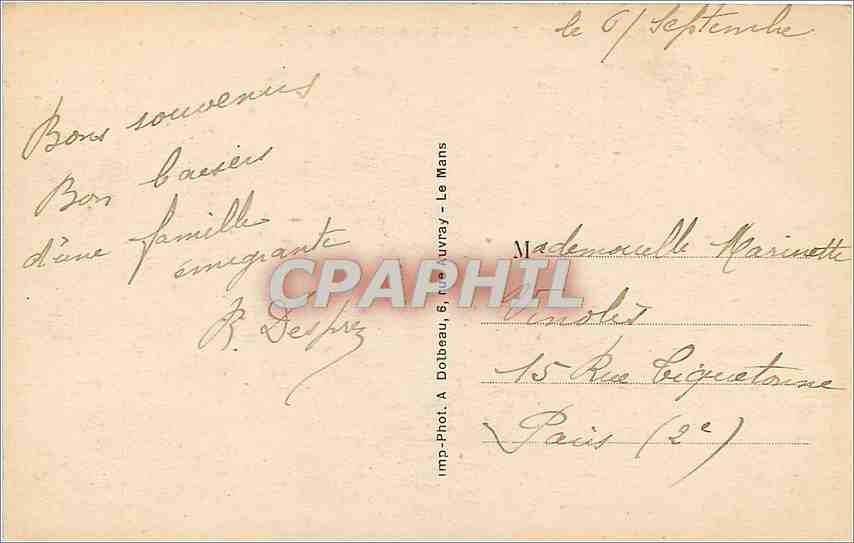 le 6/ Septembre
Bons souvenirs
Bon baisers
d'une famille
émigrante
R. Desprez
Imp-Phot. A Dolbeau, 6, rue Auvray - Le Mans
CPAPHIL
Mademoiselle Marinette
Vinolès
15 Rue Tiquetonne
Paris (2e)